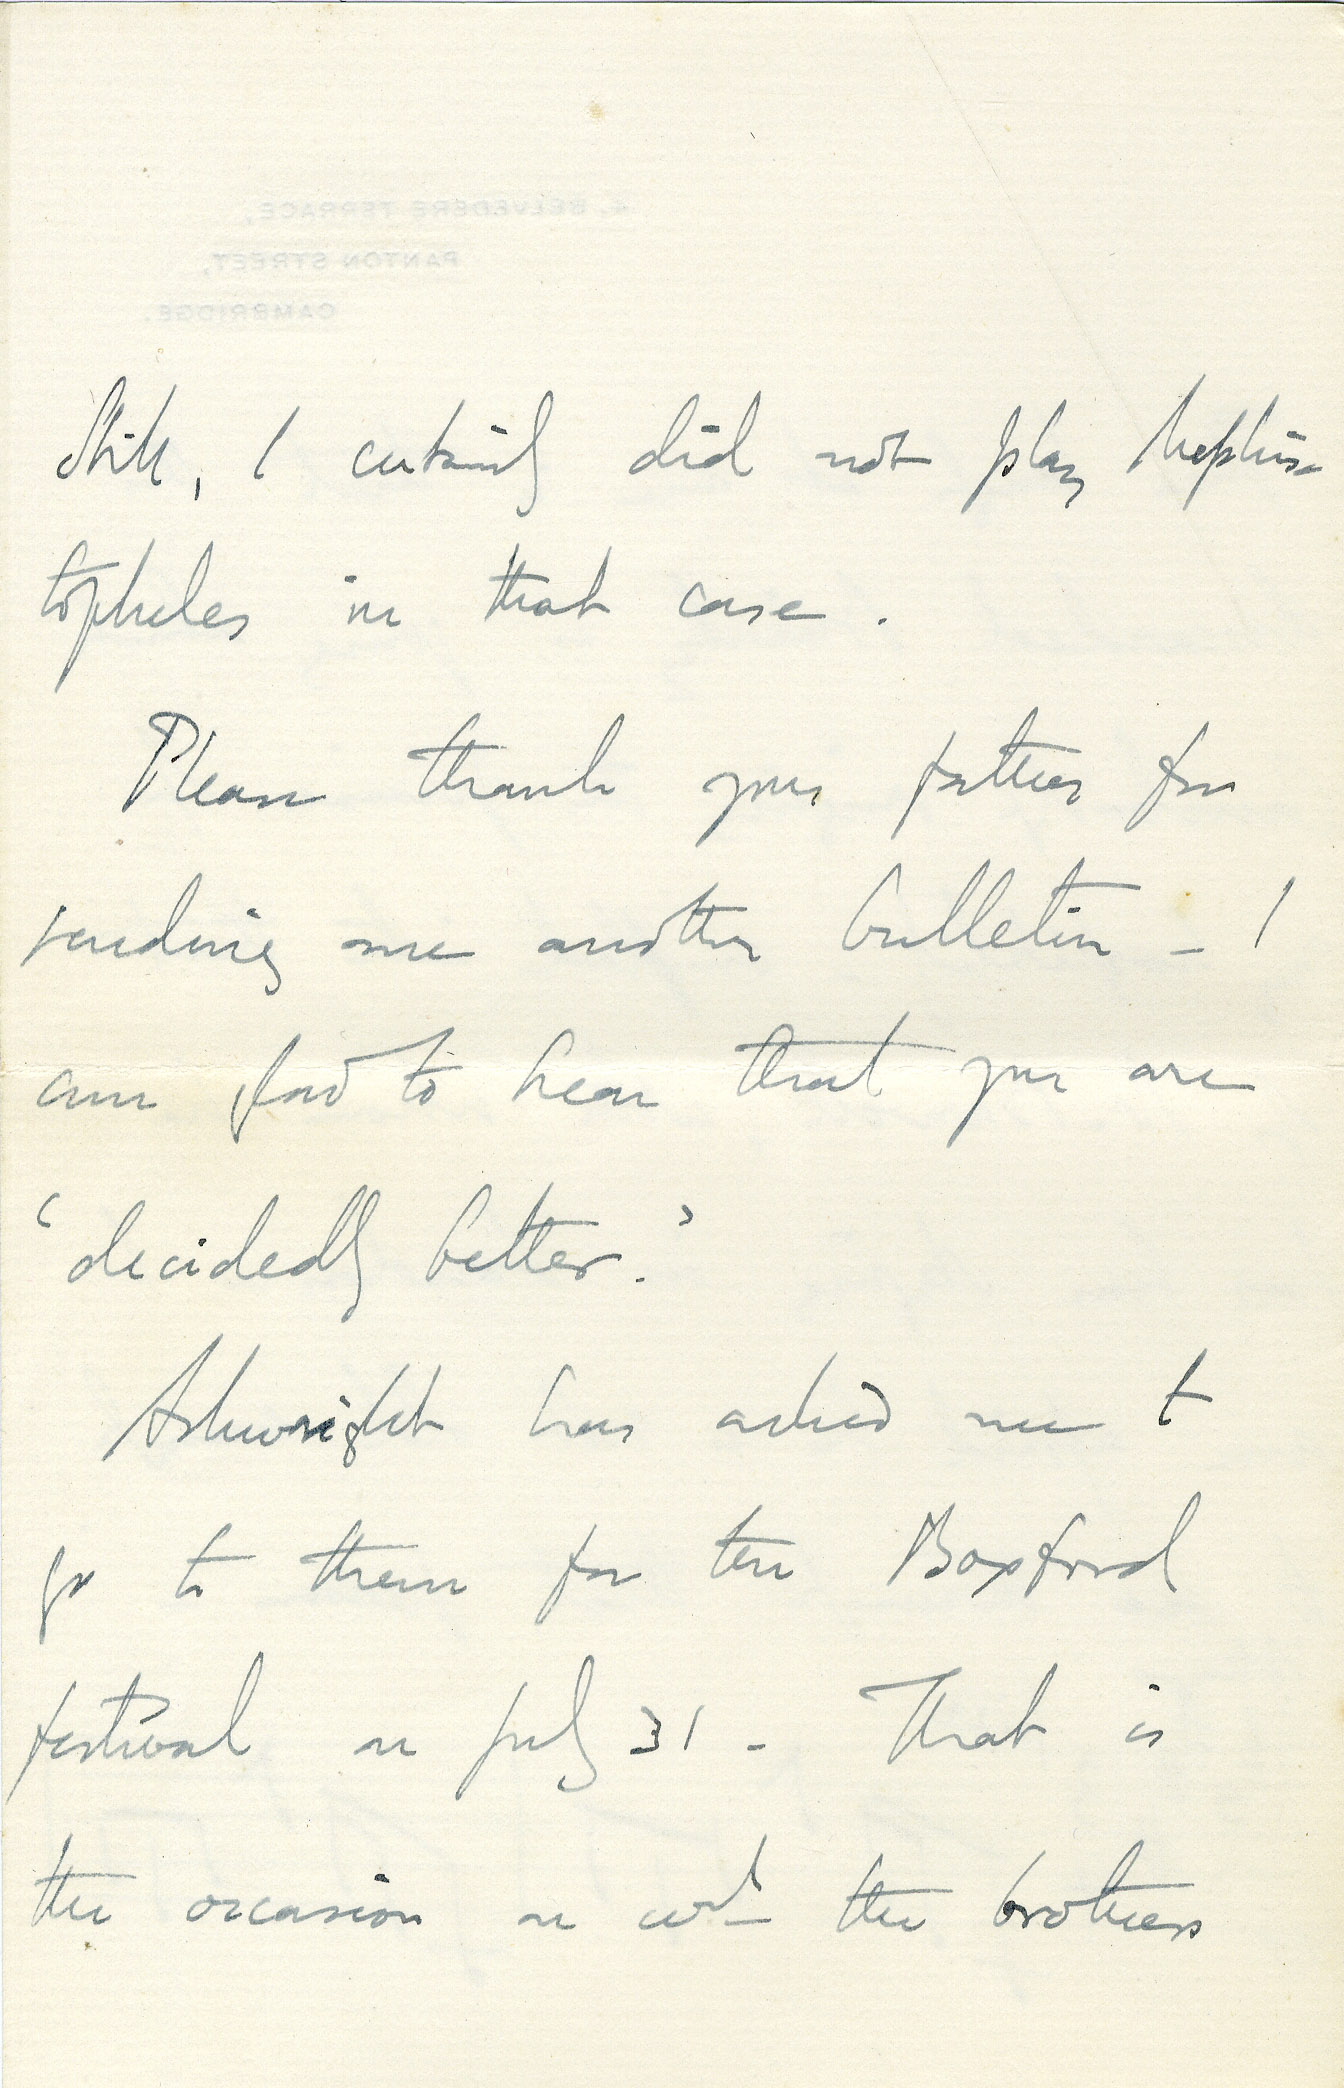 4, BELVEDERE TERRACE,
PANTON STREET,
CAMBRIDGE.
Still, I certainly did not play Mephis-
topheles in that case.
Please thank your father for
sending me another bulletin – I
am glad to hear that you are
"decidedly better."
has asked me to
go to them for the Boxford
festival on July 31 – That is
the occasion on wh the brothers